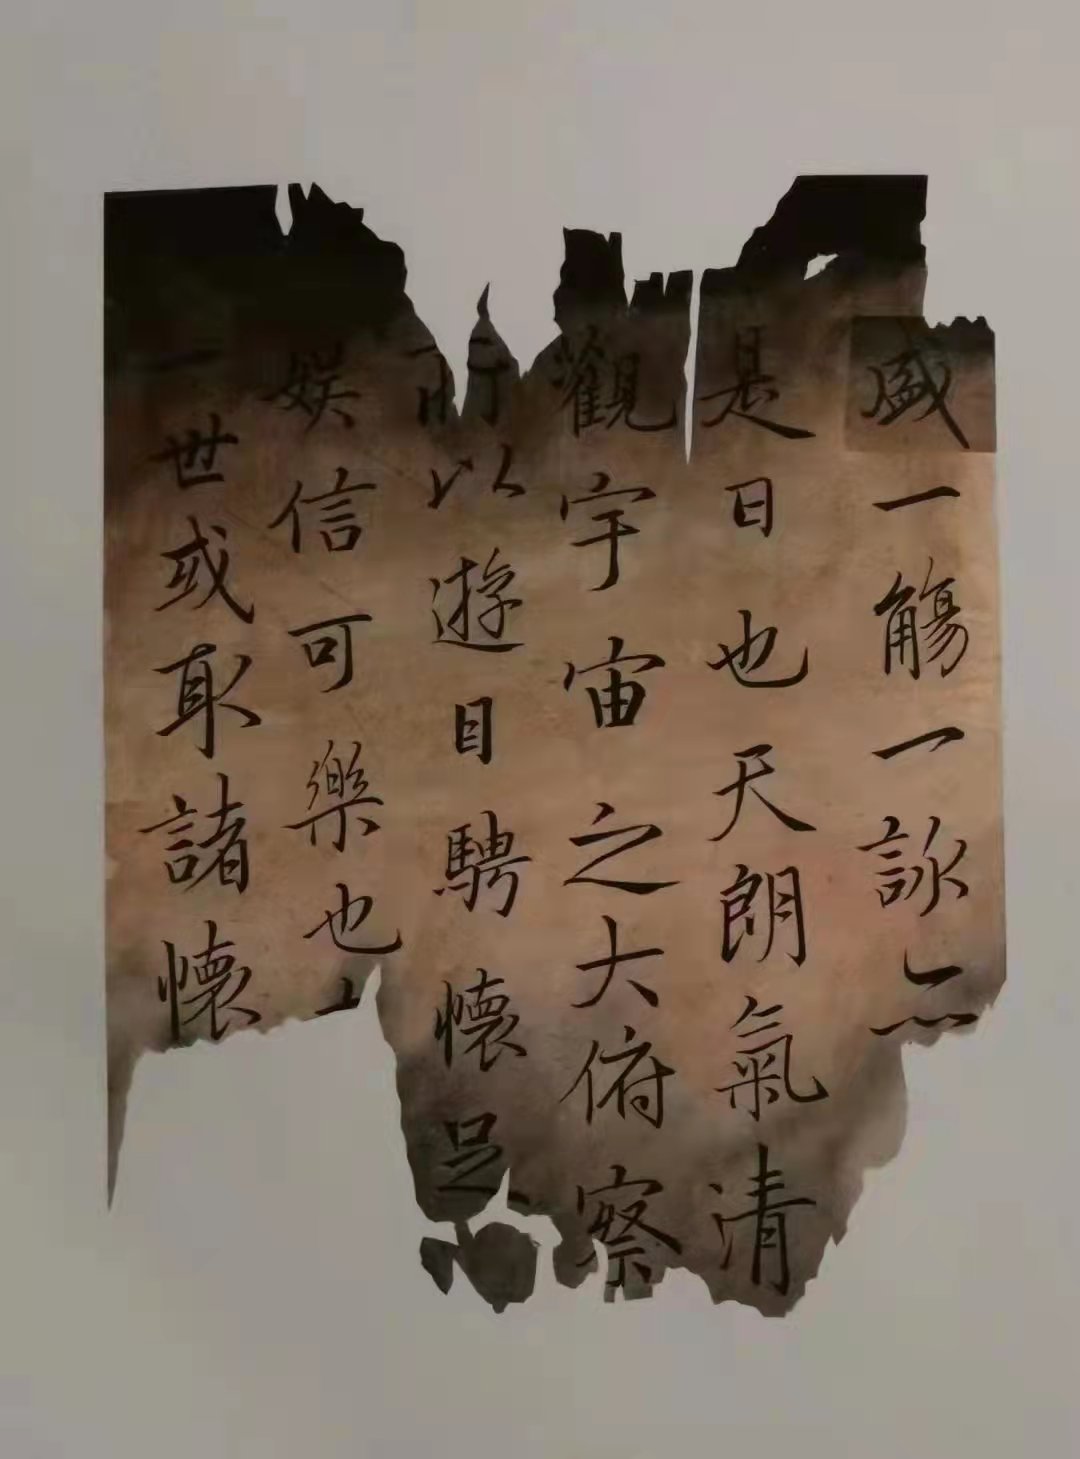 盛一觴一詠亦
是日也天朗氣清
觀宇宙之大俯察
所以遊目騁懷足
娛信可樂也
一世或取諸懷